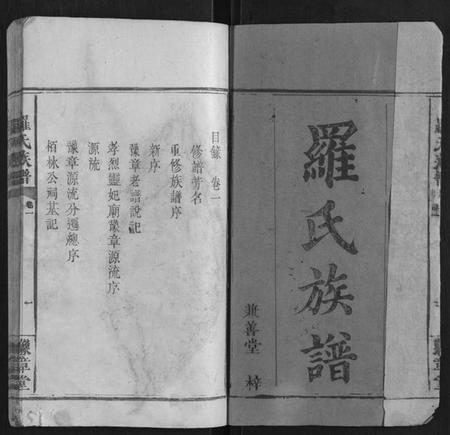 羅氏族譜
兼善堂 梓
目錄 卷一
修譜芳名
重修族譜序
新序
豫章老譜說記
孝烈靈妃廟豫章源流序
源流
豫章源流分遷總序
栢林公祠基記
羅氏族譜 卷一 一 豫章堂